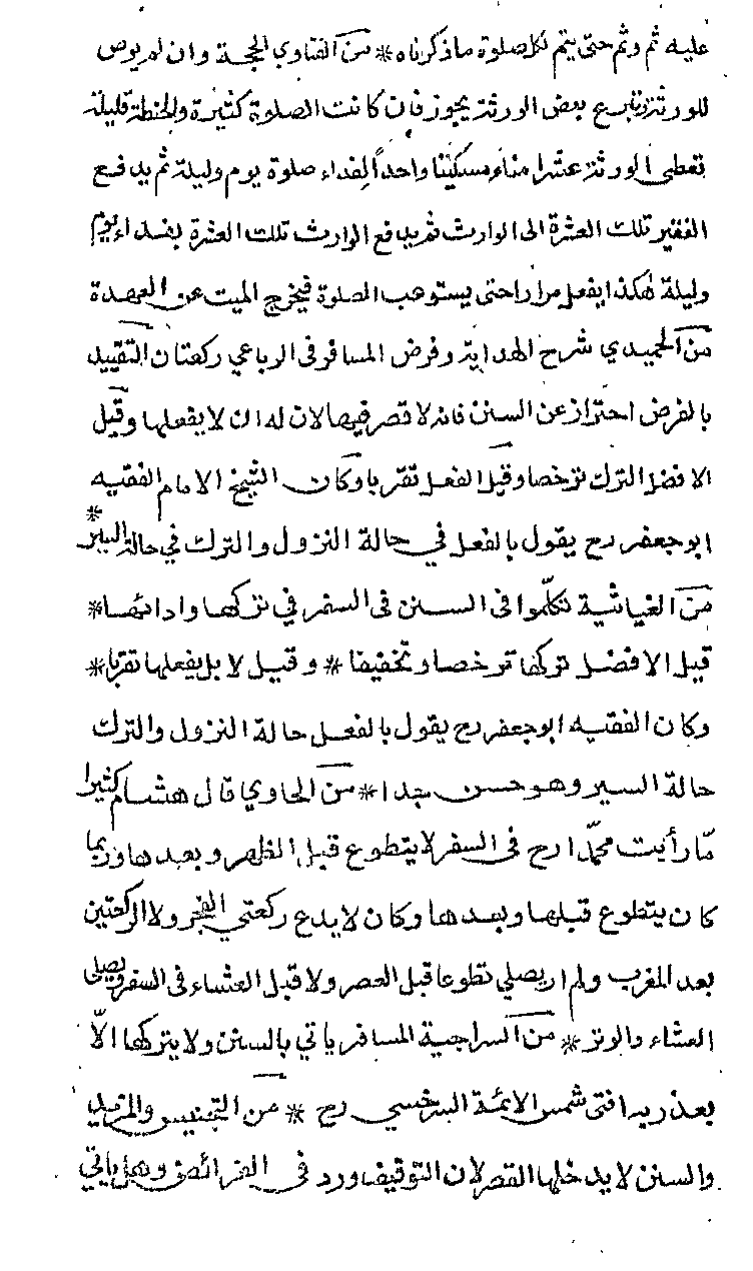 عليه ثم وثم حتى يتم لكل صلوة ما ذكرناه * من الفتاوي الحجة وان لم يوص
للورثة وتبرع بعض الورثة يجوز فان كانت الصلوة كثيرة والحنطة قليلة
تعطى الورثة عشرا منا مسكينا واحداً لفداء صلوة يوم وليلة ثم يدفع
الفقير تلك العشرة الى الوارث ثم يدفع الوارث تلك العشرة بفداء يوم
وليلة هكذا يفعل مرارا حتى يستوهب الصلوة فيخرج الميت عن العهدة
من الحميدي شرح الهداية وفرض المسافر فى الرباعي ركعتان التقييد
بالفرض احتراز عن السنن فانه لا قصر فيها لان له ان لا يفعلها وقيل
الافضل الترك ترخصا وقيل الفعل تقربا وكان الشيخ الامام الفقيه
ابو جعفر رح يقول بالفعل في حالة النزول والترك في حالة السير *
من الغياثية تكلّموا فى السنن فى السفر في تركها وادائها *
قيل الافضل تركها ترخصا وتخفيفا * وقيل لا بل يفعلها تقربا *
وكان الفقيه ابو جعفر رح يقول بالفعل حالة النزول والترك
حالة السير وهو حسن جدا * من الحاوي قال هشام كثيرا
مّا رأيت محمّدا رح فى السفر لا يتطوع قبل الظهر وبعدها وربما
كان يتطوع قبلها وبعدها وكان لا يدع ركعتي الفجر ولا الركعتين
بعد المغرب ولم ار يصلي تطوعا قبل العصر ولا قبل العشاء فى السفر ويصلى
العشاء والوتر * من السراجية المسافر ياتي بالسنن ولا يتركها الّا
بعذر به افتى شمس الائمة السرخسي رح * من التجنيس والمزيد
والسنن لا يدخلها القصر لان التوقيف ورد فى الفرائض وهل ياتي